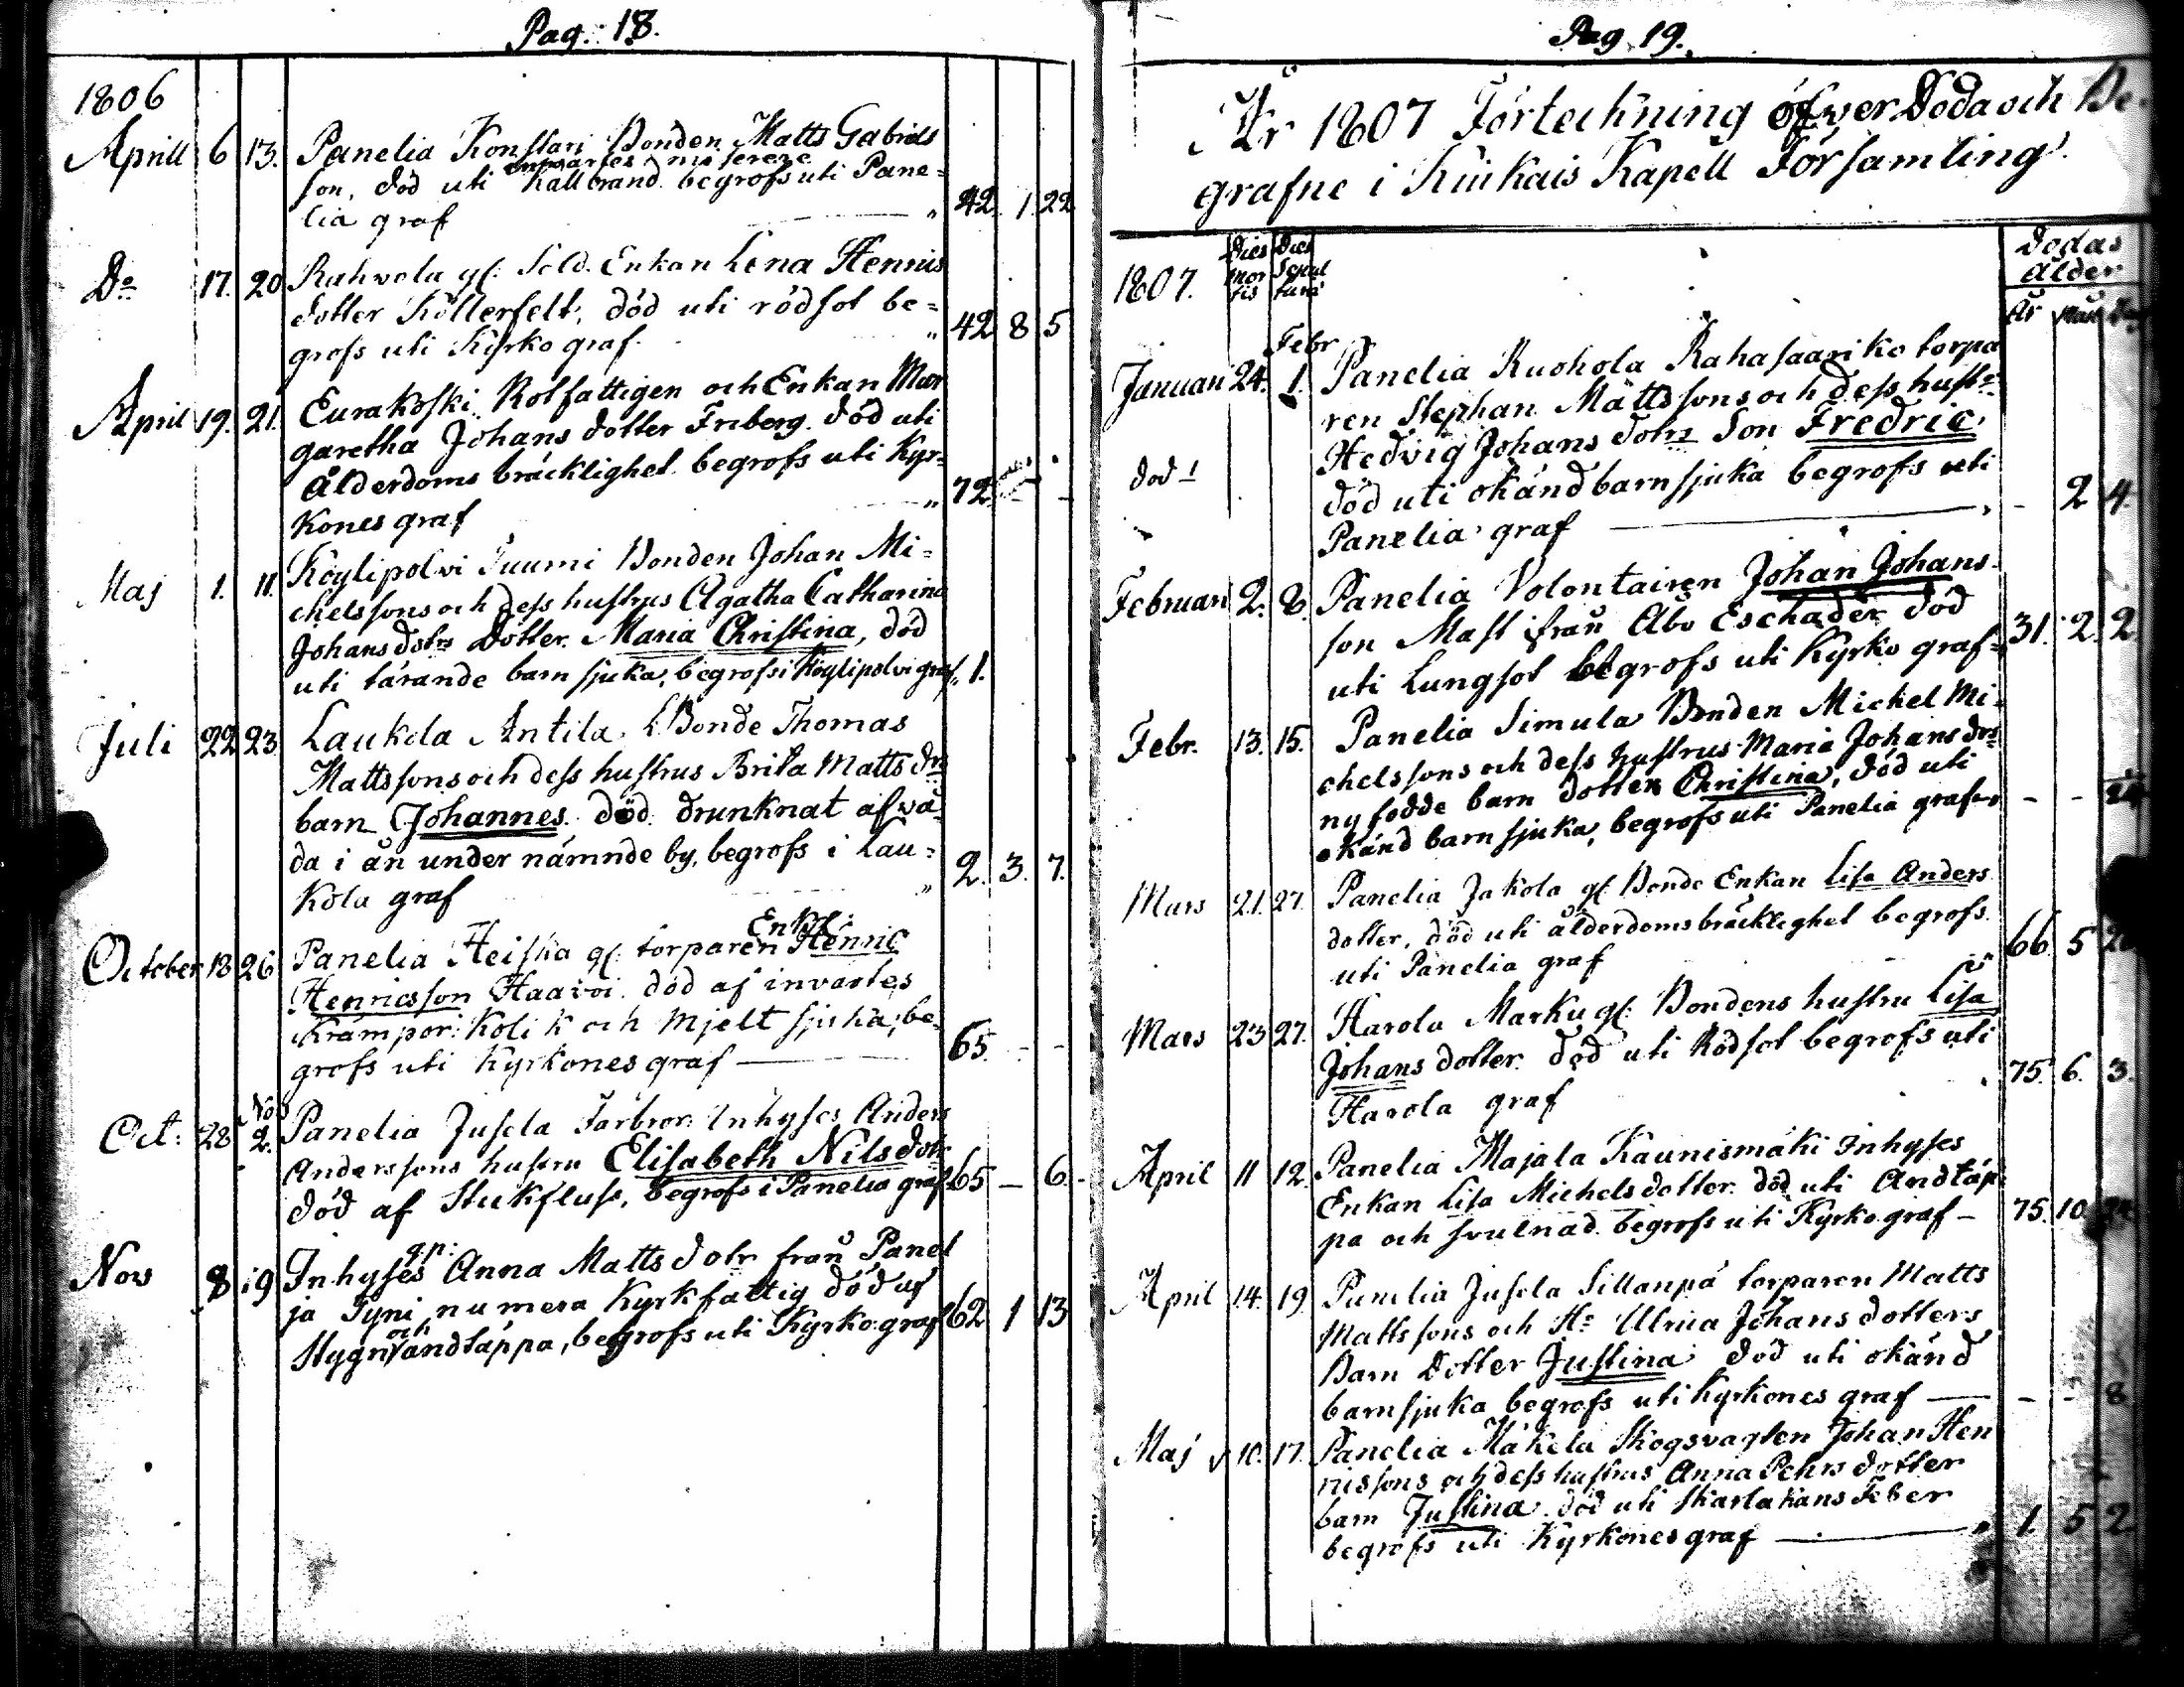 Pag. 18.
1806
Aprill 6 13. Panelia Konstari Bonden Matts Gabriels
son, död uti Kallbrand begrofs uti Pane-
lia graf 42. 1. 22
Do 17. 20 Ruhvola gl: Sold. Enkan Lena Henrics
dotter Köllerfelt, död uti rödsot be-
grofs uti Kyrko graf. 42 8 5
April 19. 21. Eurakoski Rotfattigen och Enkan Mar
garetha Johans dotter Friberg. död uti
Ålderdoms bräcklighet begrofs uti Kyr-
kones graf 72.
Maj 1. 11. Köylipolvi Tuumi Bonden Johan Mi-
chelssons och dess hustrus Agatha Catharina
Johans dotrs Dotter Maria Christina, död
uti tärande barn sjuka, begrofs i Köylipolvi graf 1.
Juli 22 23 Laukola Antila L. Bonde Thomas
Mattssons och dess hustrus Brita Matts drs
barn Johannes. död. drunknat af vå
da i ån under nämnde by, begrofs i Lau-
kola graf 2. 3. 7.
Enkl:
October 18 26 Panelia Heiska gl: torparen Henric
Henricsson Haavoi. död af invärtes
Krämpor: Kolik och Mjelt sjuka, be-
grofs uti Kyrkones graf 65.
Nov
Oct: 28 2. Panelia Jusela Farbror Inhyses Anders
Anderssons hustru Elisabeth Nilsdotr
död af Stickfluss, begrofs i Panelia graf 65 — 6.
gp:
Nov 8 19 Inhyses Anna Matts dotr från Panel
ja Tyni numera Kyrkfattig död af
Stygn och andtäppa, begrofs uti Kyrko graf 62 1 13
Pag. 19.
År 1807 Förteckning öfver Döda och Be-
grafne i Kiukais Kapell Församling.
1807. Dies mor tis Dies Sepul turæ Dödas Ålder
År Mån Dag
Febr
Januari 24. 1. Panelia Ruohola Rahasaariko torpa
ren Stephan Mattssons och dess hustr:
Hedvig Johans dotrs Son Fredric
död uti okänd barnsjuka begrofs uti
Panelia graf — 2 4.
Februari 2. 8. Panelia Volontairen Johan Johans-
son Mast ifrån Åbo Eschader död
uti Lungsot begrofs uti Kyrko graf 31. 2. 2
Febr. 13. 15. Panelia Simula Bonden Michel Mi-
chelssons och dess hustrus Maria Johans drs
nyfödde barn dotter Christina, död uti
okänd barnsjuka, begrofs uti Panelia graf - -
Mars 21. 27. Panelia Jakola gl: Bonde Enkan Lisa Anders
dotter, död uti ålderdoms bräcklighet begrofs
uti Panelia graf 66. 5
Mars 23 27. Harola Marku gl: Bondens hustru Lisa
Johans dotter. död uti Rödsot begrofs uti
Harola graf 75. 6. 3.
April 11 12. Panelia Majala Kaunismäki Inhyses
Enkan Lisa Michels dotter. död uti Andtäp-
pa och svulnad. begrofs uti Kyrko graf — 75. 10
April 14. 19. Panelia Jusela Sillanpä torparen Matts
Mattssons och H: Ulrica Johans dotters
Barn Dotter Justina död uti okänd
barnsjuka begrofs uti Kyrkones graf — - - 8
Maj 10. 17. Panelia Mäkela Skogsvagten Johan Hen
ricssons och dess hustrus Anna Pehrs dotter
barn Justina. död uti Skarlakans Feber
begrofs uti Kyrkones graf — 1 5 2